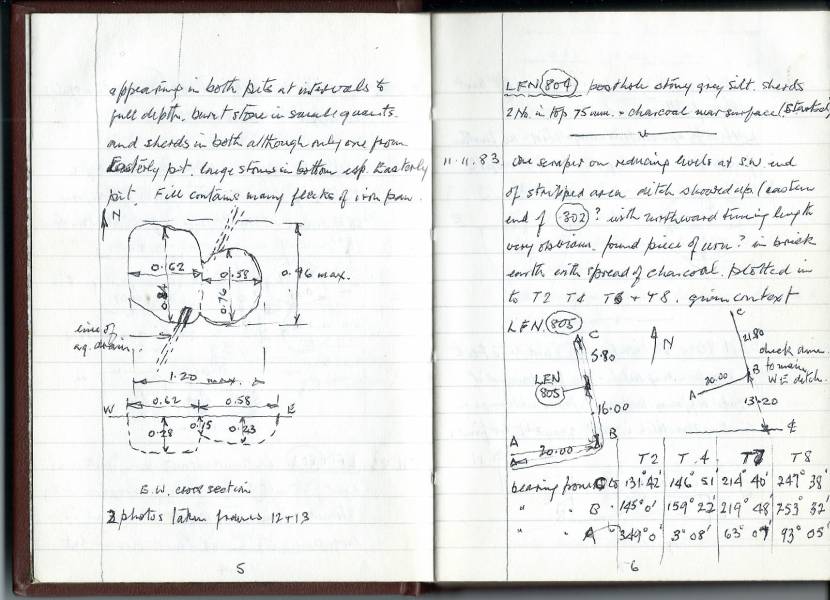 appearing in both pits at intervals to
full depth. burnt stone in small quants.
and sherds in both although only one from
Easterly pit. Large stones in bottom esp. Easterly
pit. Fill contains many flecks of iron pan.
N
0.62
0.58
0.96 max.
0.84
0.76
line of
ag. drain
1.20 max.
0.62
0.58
W
E
0.28
0.15
0.23
E.W. cross section
2 photos taken frames 12+13
5
LEN 804 posthole stony grey silt. sherds
2 No. in top 75 mm. + charcoal near surface (started)
11.11.83 one scraper on reducing levels at S.W. end
of stripped area ditch showed up (eastern
end of 802? with northward turning length
very obvious. found piece of iron? in brick
earth with spread of charcoal. plotted in
to T2 T4 T6 + T8. given context
LEN 805
C
5.80
N
LEN
805
16.00
A
20.00
B
C
21.80
check dim.
to main
W E ditch.
20.00
B
A
13.20
℄
T2 T.4 T7 T8
bearing from C to 131°42' 146°51' 214°40' 247°38'
" " B " 145°0' 159°22' 219°48' 253°32'
" " A " 349°0' 3°08' 63°07' 93°05'
6